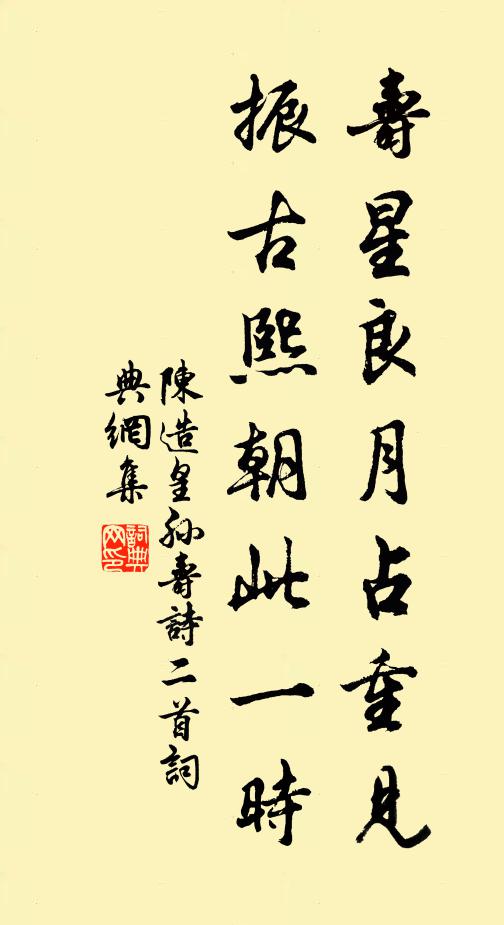 壽星良月占重見
振古熙朝此一時
陳造皇孙壽詩二首詞
典網集
詞典
网印